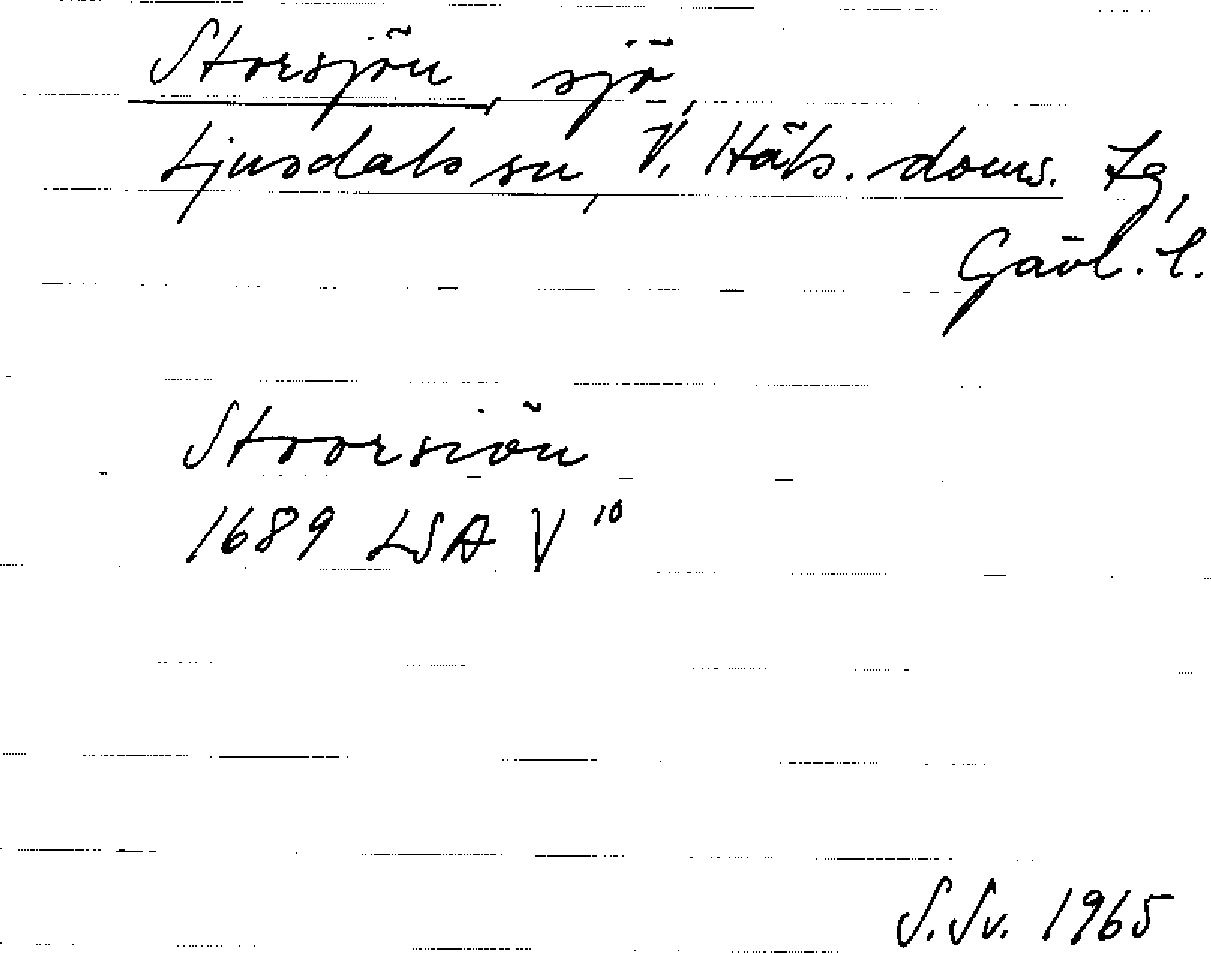 Storsjön, sjö,
Ljusdals sn, V. Häls. doms. Lg,
Gävl. l.
Stoorsiön
1689 LSA V¹⁰
S. Sv. 1965